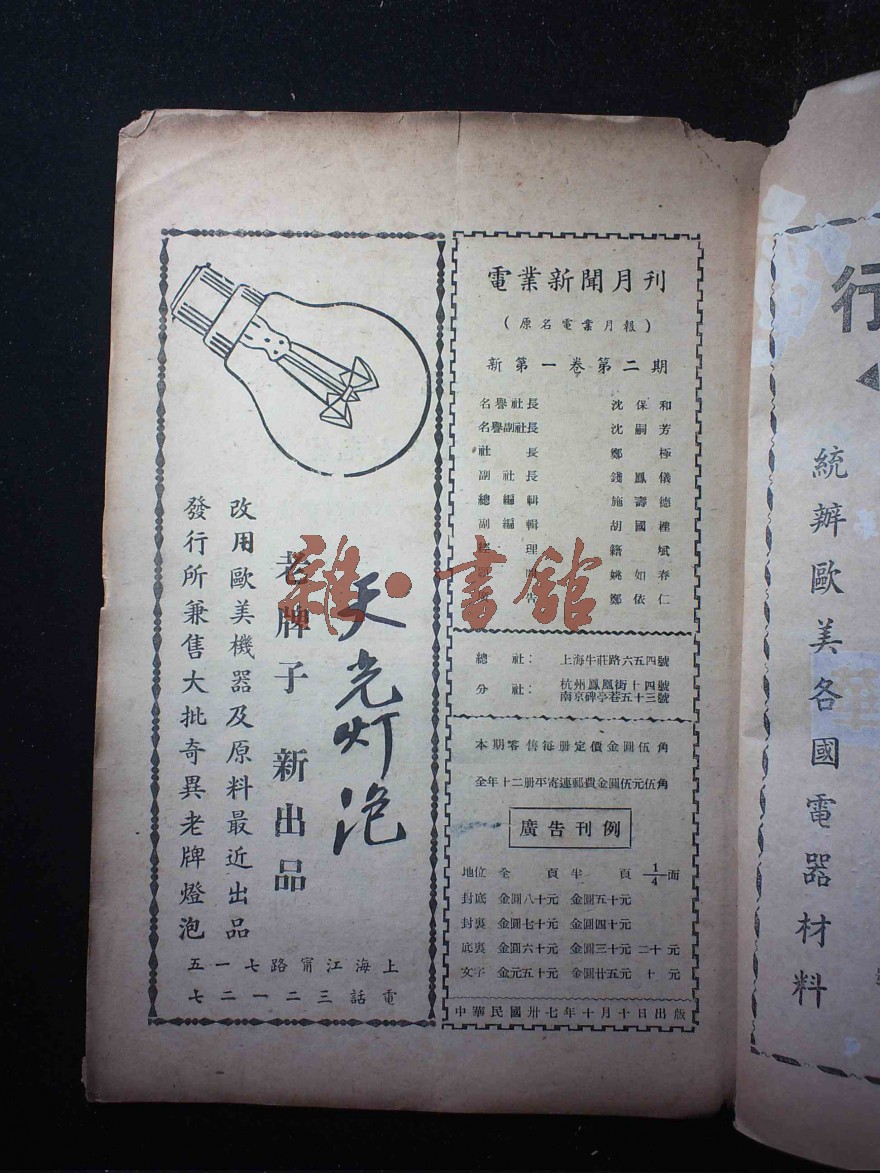 電業新聞月刊
(原名電業月報)
新第一卷第二期
名譽社長 沈保和
名譽副社長 沈嗣芳
社長 鄭極
副社長 錢鳳儀
總編輯 施壽德
副編輯 胡國
理 斌
姚如春
鄭依仁
總社: 上海牛莊路六五四號
分社: 杭州鳳凰街十四號
南京碑亭巷五十三號
本期零售每册定價金圓伍角
全年十二册平寄連郵費金圓伍元伍角
廣告刊例
地位 全頁 半頁 1/4面
封底 金圓八十元 金圓五十元
封裏 金圓七十元 金圓四十元
底裏 金圓六十元 金圓三十元 二十元
文字 金元五十元 金圓廿五元 十元
中華民國卅七年十月十日出版
天光灯泡
老牌子 新出品
改用歐美機器及原料最近出品
發行所兼售大批奇異老牌燈泡
上海江甯路七一五
電話三二一二七
雜·書館
行
統辦歐美各國電器材料
華